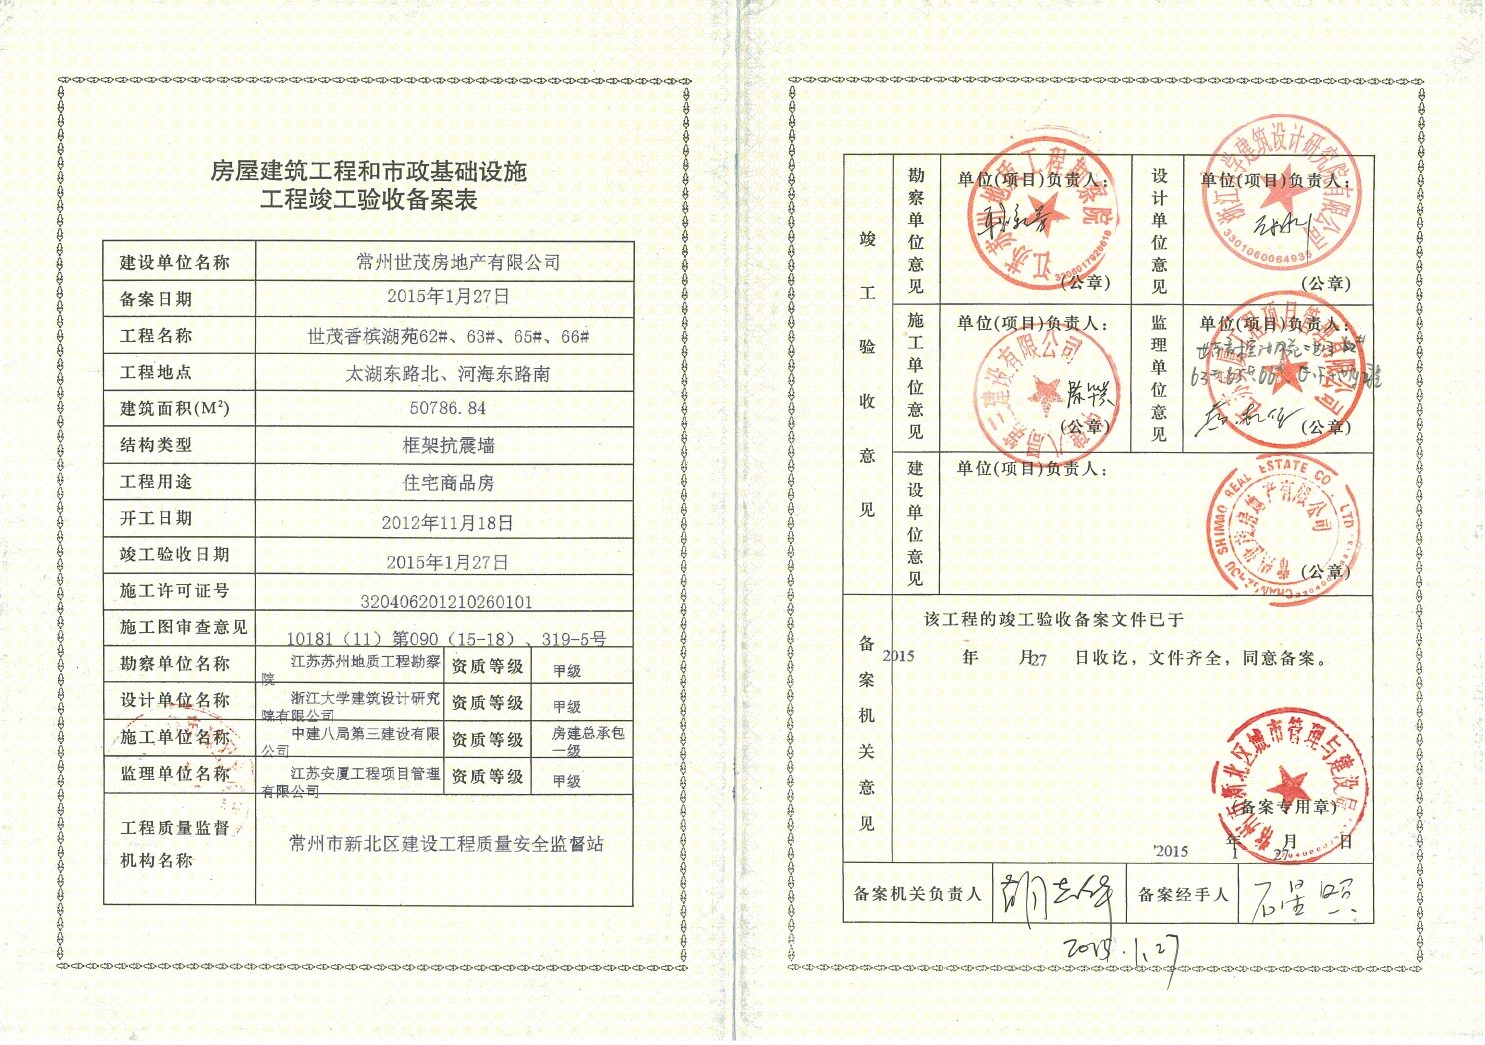 房屋建筑工程和市政基础设施
工程竣工验收备案表
建设单位名称 常州世茂房地产有限公司
备案日期 2015年1月27日
工程名称 世茂香槟湖苑62#、63#、65#、66#
工程地点 太湖东路北、河海东路南
建筑面积(M²) 50786.84
结构类型 框架抗震墙
工程用途 住宅商品房
开工日期 2012年11月18日
竣工验收日期 2015年1月27日
施工许可证号 320406201210260101
施工图审查意见 10181（11）第090（15-18）、319-5号
勘察单位名称 江苏苏州地质工程勘察
院 资质等级 甲级
设计单位名称 浙江大学建筑设计研究
院有限公司 资质等级 甲级
施工单位名称 中建八局第三建设有限
公司 资质等级 房建总承包
一级
监理单位名称 江苏安厦工程项目管理
有限公司 资质等级 甲级
工程质量监督
机构名称 常州市新北区建设工程质量安全监督站
竣工验收意见
勘察单位意见 单位(项目)负责人：
江苏苏州地质工程勘察院
3205017020618
(公章)
设计单位意见 单位(项目)负责人：
浙江大学建筑设计研究院有限公司
(公章)
施工单位意见 单位(项目)负责人：
中建八局第三建设有限公司
(公章)
监理单位意见 单位(项目)负责人：
(公章)
建设单位意见 单位(项目)负责人：
CHANGZHOU SHIMAO REAL ESTATE CO., LTD
常州世茂房地产有限公司
(公章)
备案机关意见
该工程的竣工验收备案文件已于
2015 年 1月27 日收讫，文件齐全，同意备案。
常州市新北区城市管理与建设局
(备案专用章)
2015 年 1 月 27 日
备案机关负责人 备案经手人
2015.1.27